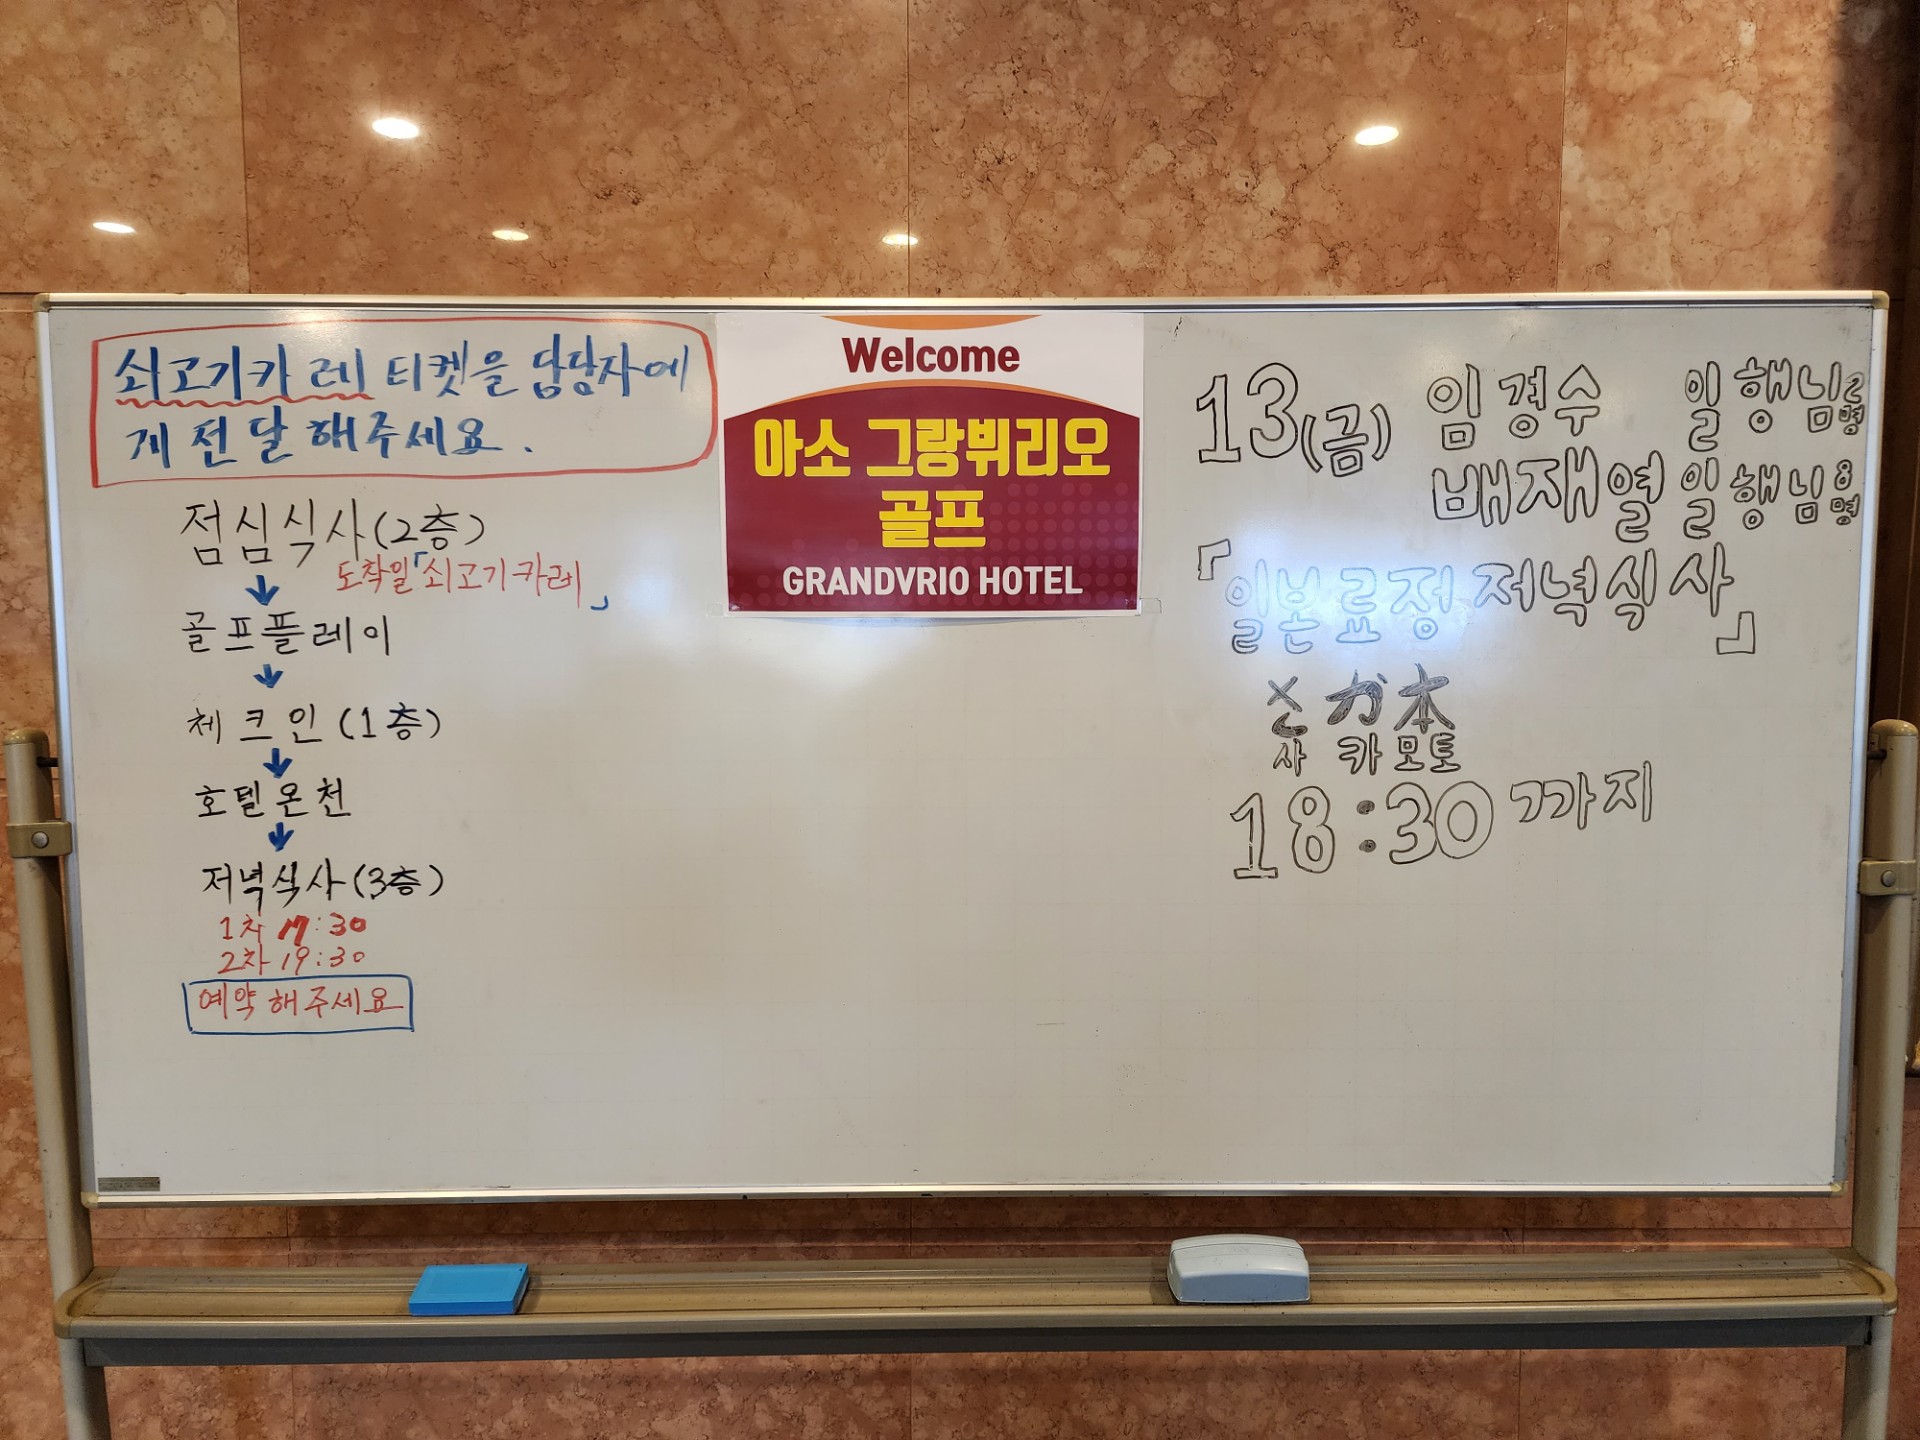 쇠고기카레 티켓을 담당자에
게 전달해주세요.
점심식사(2층)
도착일「쇠고기카레」
골프플레이
체크인(1층)
호텔온천
저녁식사(3층)
1차 17:30
2차 19:30
예약해주세요
Welcome
아소 그랑뷔리오
골프
GRANDVRIO HOTEL
13(금) 임경수 일행님2명
배재열 일행님8명
「일본료정 저녁식사」
さか本
사카모토
18:30 까지